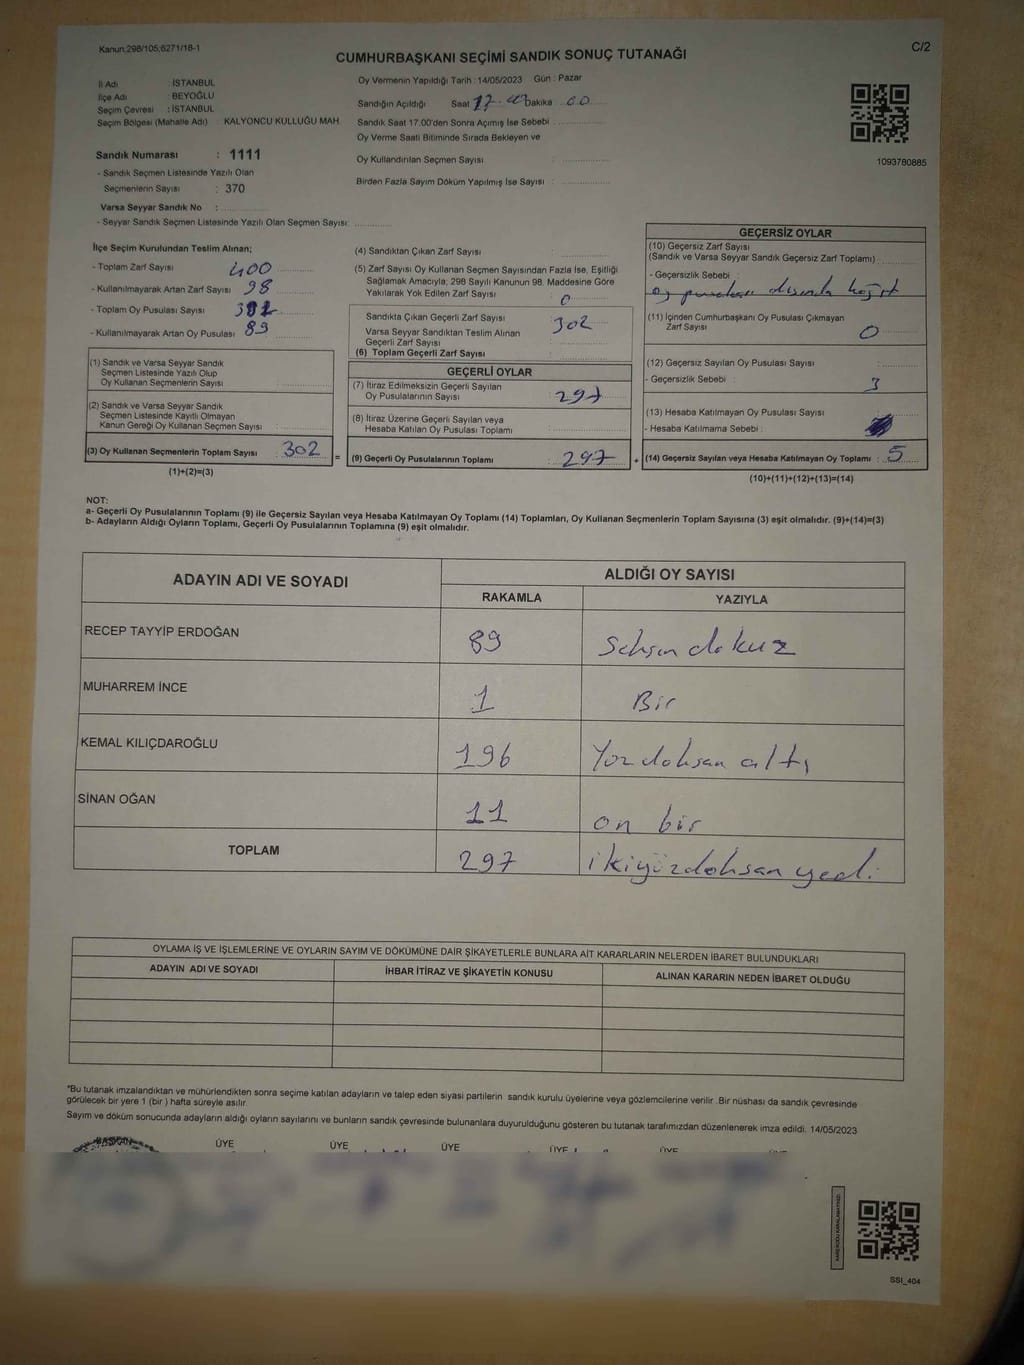 Kanun:298/105;6271/18-1
C/2
CUMHURBAŞKANI SEÇİMİ SANDIK SONUÇ TUTANAĞI
İl Adı : İSTANBUL
İlçe Adı : BEYOĞLU
Seçim Çevresi : İSTANBUL
Seçim Bölgesi (Mahalle Adı) : KALYONCU KULLUĞU MAH.
Sandık Numarası : 1111
- Sandık Seçmen Listesinde Yazılı Olan
Seçmenlerin Sayısı : 370
Varsa Seyyar Sandık No :
- Seyyar Sandık Seçmen Listesinde Yazılı Olan Seçmen Sayısı:
Oy Vermenin Yapıldığı Tarih : 14/05/2023 Gün : Pazar
Sandığın Açıldığı Saat 17.00 Dakika 00
Sandık Saat 17.00'den Sonra Açımış İse Sebebi :
Oy Verme Saati Bitiminde Sırada Bekleyen ve
Oy Kullandırılan Seçmen Sayısı :
Birden Fazla Sayım Döküm Yapılmış İse Sayısı :
1093780885
İlçe Seçim Kurulundan Teslim Alınan;
- Toplam Zarf Sayısı : 400
- Kullanılmayarak Artan Zarf Sayısı : 98
- Toplam Oy Pusulası Sayısı :
- Kullanılmayarak Artan Oy Pusulası : 89
(1) Sandık ve Varsa Seyyar Sandık
Seçmen Listesinde Yazılı Olup
Oy Kullanan Seçmenlerin Sayısı :
(2) Sandık ve Varsa Seyyar Sandık
Seçmen Listesinde Kayıtlı Olmayan
Kanun Gereği Oy Kullanan Seçmen Sayısı :
(3) Oy Kullanan Seçmenlerin Toplam Sayısı : 302
(1)+(2)=(3)
(4) Sandıktan Çıkan Zarf Sayısı :
(5) Zarf Sayısı Oy Kullanan Seçmen Sayısından Fazla İse, Eşitliği
Sağlamak Amacıyla; 298 Sayılı Kanunun 98. Maddesine Göre
Yakılarak Yok Edilen Zarf Sayısı : 0
Sandıkta Çıkan Geçerli Zarf Sayısı : 302
Varsa Seyyar Sandıktan Teslim Alınan
Geçerli Zarf Sayısı :
(6) Toplam Geçerli Zarf Sayısı :
GEÇERLİ OYLAR
(7) İtiraz Edilmeksizin Geçerli Sayılan
Oy Pusulalarının Sayısı : 297
(8) İtiraz Üzerine Geçerli Sayılan veya
Hesaba Katılan Oy Pusulası Toplamı :
= (9) Geçerli Oy Pusulalarının Toplamı : 297
GEÇERSİZ OYLAR
(10) Geçersiz Zarf Sayısı
(Sandık ve Varsa Seyyar Sandık Geçersiz Zarf Toplamı) :
- Geçersizlik Sebebi :
oy pusulası dışında kağıt
(11) İçinden Cumhurbaşkanı Oy Pusulası Çıkmayan
Zarf Sayısı : 0
(12) Geçersiz Sayılan Oy Pusulası Sayısı :
- Geçersizlik Sebebi : 3
(13) Hesaba Katılmayan Oy Pusulası Sayısı :
- Hesaba Katılmama Sebebi :
+ (14) Geçersiz Sayılan veya Hesaba Katılmayan Oy Toplamı : 5
(10)+(11)+(12)+(13)=(14)
NOT:
a- Geçerli Oy Pusulalarının Toplamı (9) ile Geçersiz Sayılan veya Hesaba Katılmayan Oy Toplamı (14) Toplamları, Oy Kullanan Seçmenlerin Toplam Sayısına (3) eşit olmalıdır. (9)+(14)=(3)
b- Adayların Aldığı Oyların Toplamı, Geçerli Oy Pusulalarının Toplamına (9) eşit olmalıdır.
ADAYIN ADI VE SOYADI ALDIĞI OY SAYISI
RAKAMLA YAZIYLA
RECEP TAYYİP ERDOĞAN 89 Seksen dokuz
MUHARREM İNCE 1 Bir
KEMAL KILIÇDAROĞLU 196 Yüzdoksan altı
SİNAN OĞAN 11 on bir
TOPLAM 297 ikiyüzdoksan yedi
OYLAMA İŞ VE İŞLEMLERİNE VE OYLARIN SAYIM VE DÖKÜMÜNE DAİR ŞİKAYETLERLE BUNLARA AİT KARARLARIN NELERDEN İBARET BULUNDUKLARI
ADAYIN ADI VE SOYADI İHBAR İTİRAZ VE ŞİKAYETİN KONUSU ALINAN KARARIN NEDEN İBARET OLDUĞU
*Bu tutanak imzalandıktan ve mühürlendikten sonra seçime katılan adayların ve talep eden siyasi partilerin sandık kurulu üyelerine veya gözlemcilerine verilir .Bir nüshası da sandık çevresinde
görülecek bir yere 1 (bir ) hafta süreyle asılır.
Sayım ve döküm sonucunda adayların aldığı oyların sayılarını ve bunların sandık çevresinde bulunanlara duyurulduğunu gösteren bu tutanak tarafımızdan düzenlenerek imza edildi. 14/05/2023
BAŞKAN ÜYE ÜYE ÜYE ÜYE ÜYE
KAREKODU KARALAMAYINIZ!
SSI_404